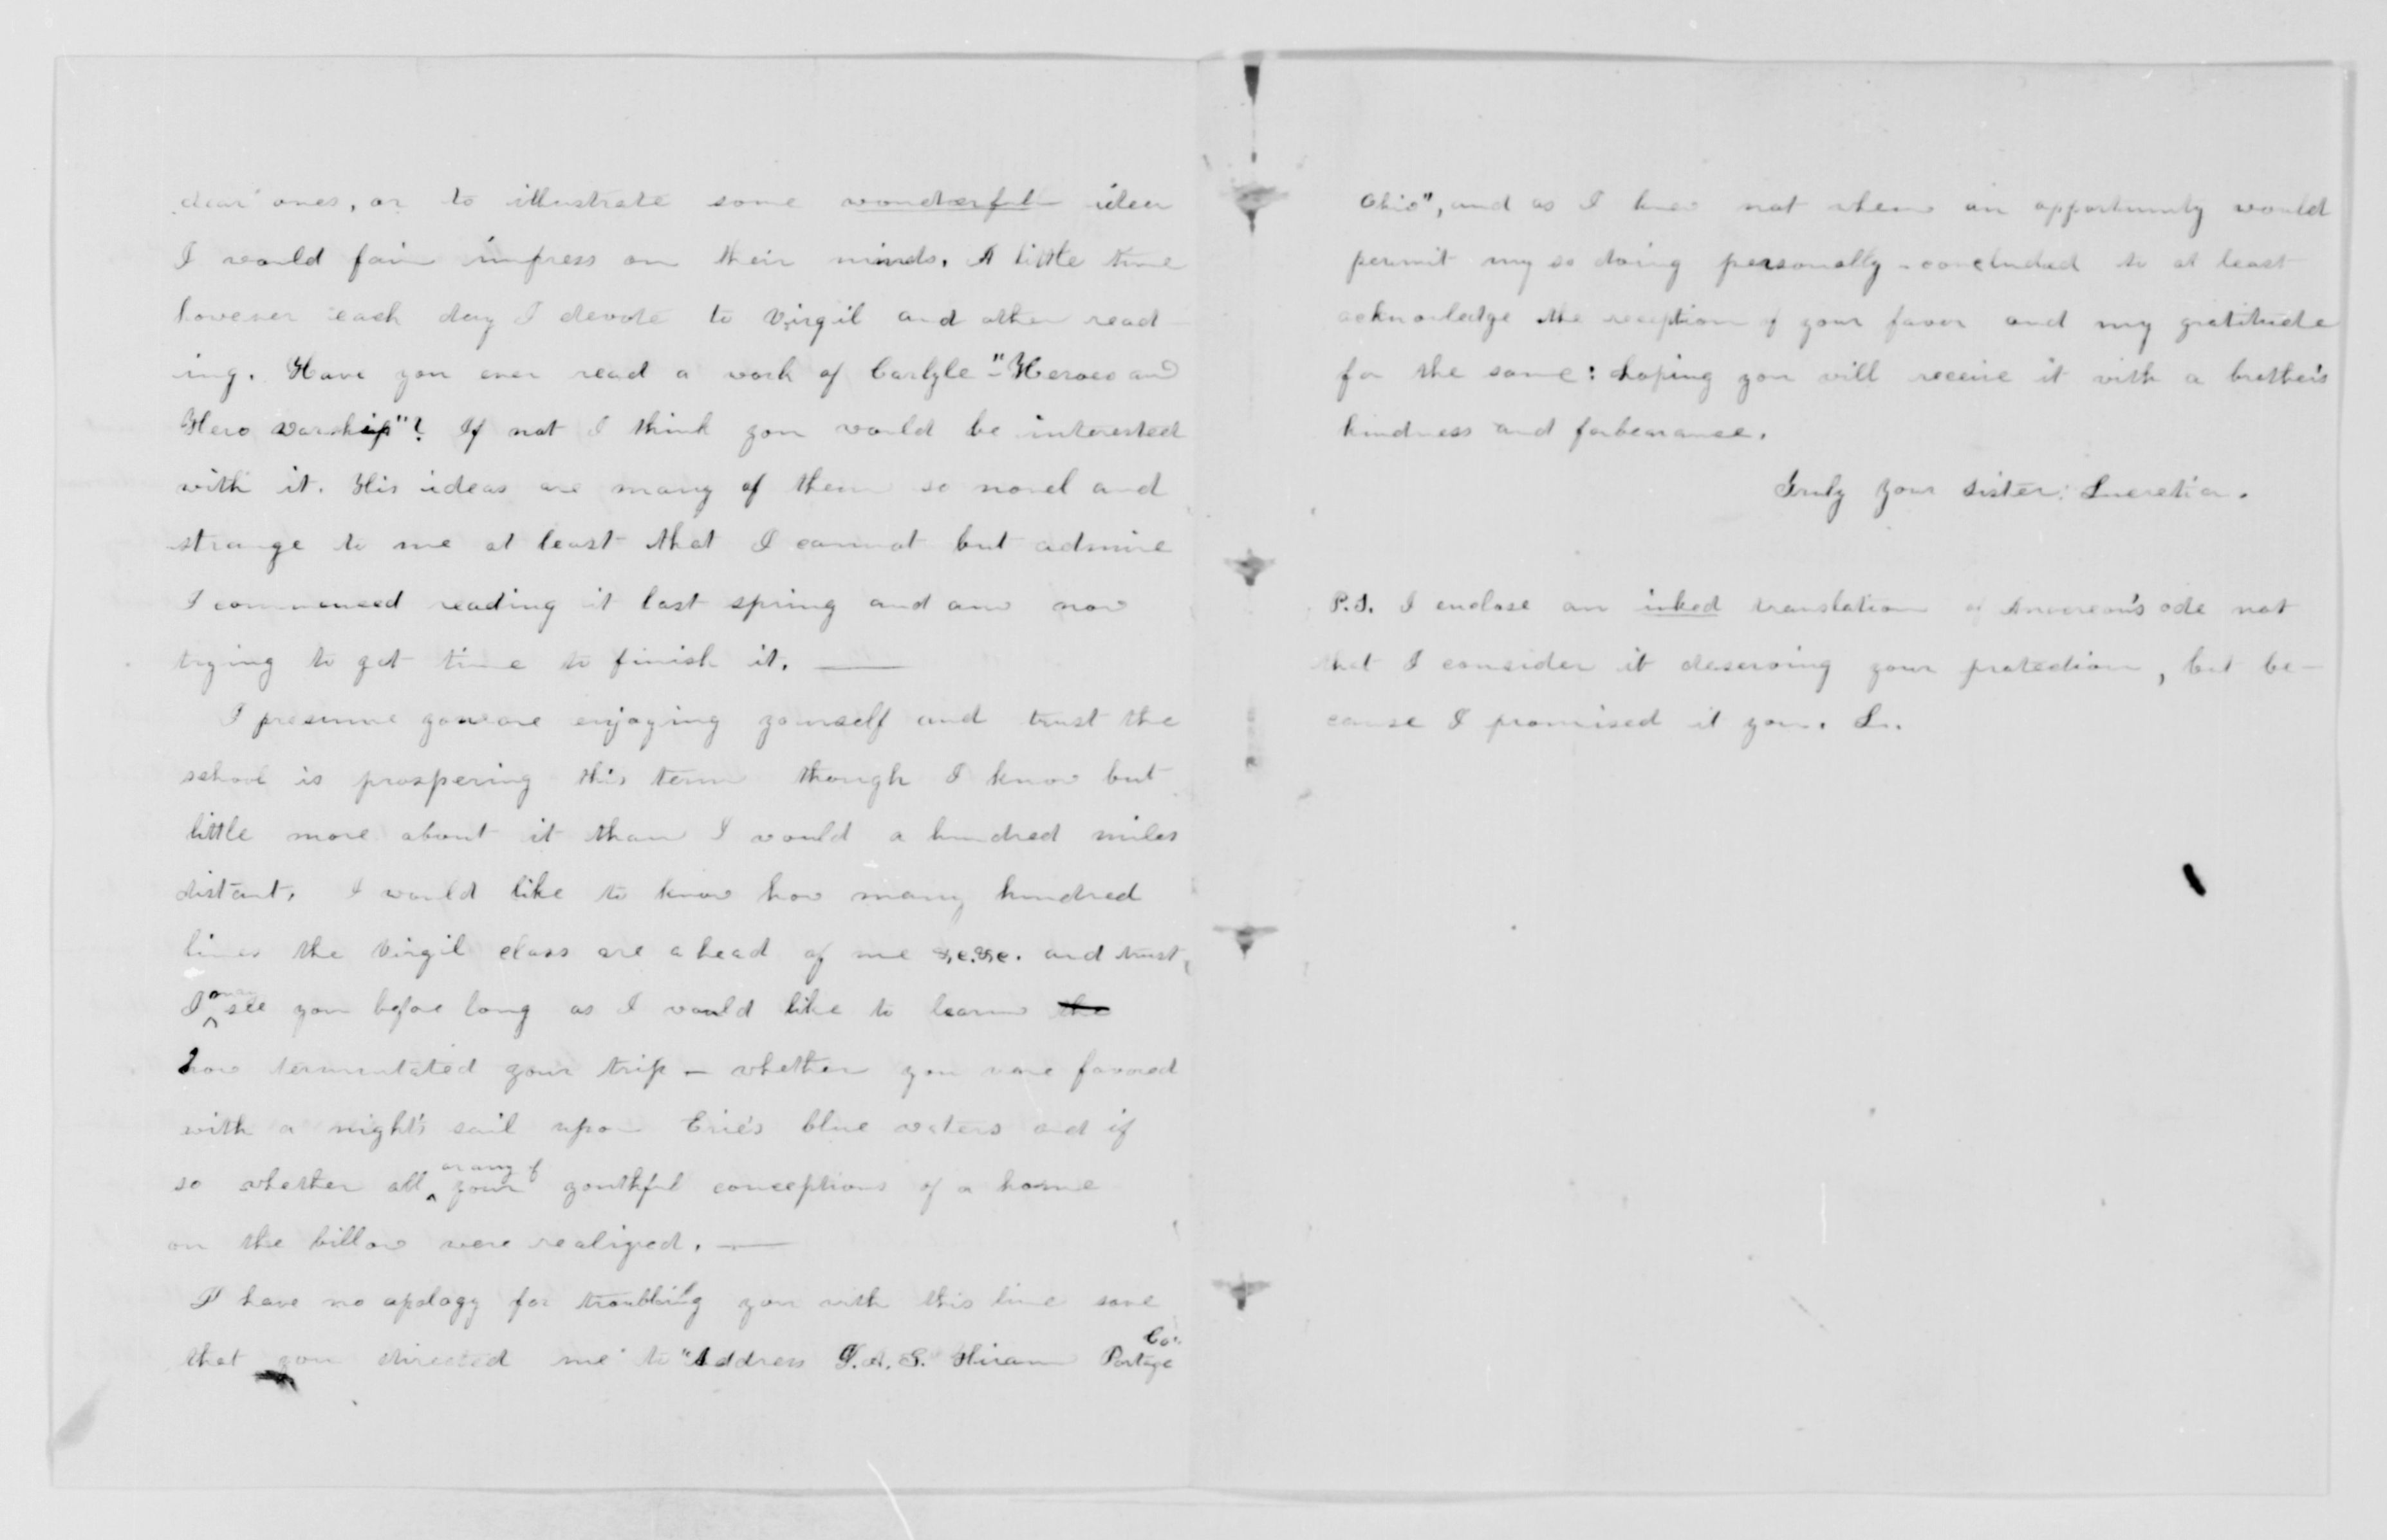 dear ones, or to illustrate some wonderful idea
I would fain impress on their minds. A little time
however each day I devote to Virgil and other read
ing. Have you ever read a work of Carlyle - "Heroes and
Hero worship"? If not I think you would be interested
with it. His ideas are many of them so novel and
strange to me at least that I cannot but admire
I commenced reading it last spring and am now
trying to get time to finish it. —
I presume you are enjoying yourself and trust the
school is prospering this term though I know but
little more about it than I would a hundred miles
distant. I would like to know how many hundred
lines the Virgil class are ahead of me &c. &c. and trust
I may see you before long as I would like to learn the
how termintated your trip - whether you were favored
with a night's sail upon Erie's blue waters and if
so whether all or any of your youthful conceptions of a home
on the billow were realized. —
I have no apology for troubling you with this line save
that you directed me to "Address J. A. G. Hiram Portage Co.
Ohio", and as I knew not when an opportunity would
permit my so doing personally - concluded to at least
acknowledge the reception of your favor and my gratitude
for the same: hoping you will receive it with a brother's
kindness and forbearance.
Truly your sister: Lucretia.
P.S. I enclose an inked translation of Anacreon's ode not
that I consider it deserving your protection, but be-
cause I promised it you. L.